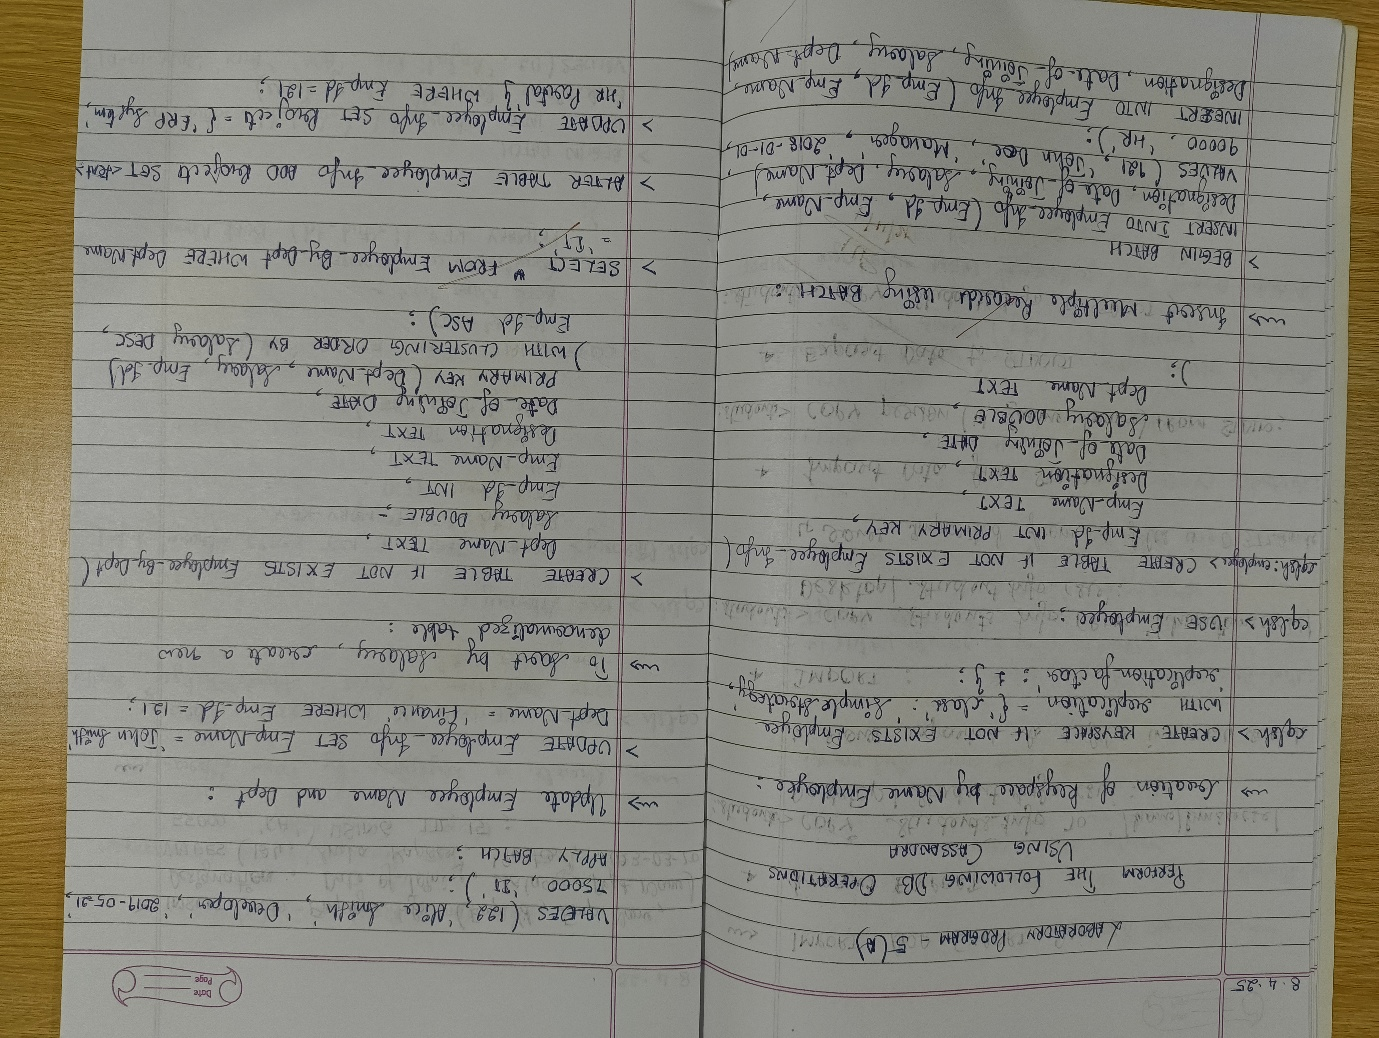 8.4.25
LABORATORY PROGRAM - 5(A)
PERFORM THE FOLLOWING DB OPERATIONS
USING CASSANDRA
Creation of Keyspace by Name Employee :
cqlsh > CREATE KEYSPACE IF NOT EXISTS Employee
WITH replication = { 'class' : 'SimpleStrategy',
'replication_factor' : 1 } ;
cqlsh > USE Employee ;
cqlsh : employee > CREATE TABLE IF NOT EXISTS Employee_Info (
Emp_Id INT PRIMARY KEY,
Emp_Name TEXT
Designation TEXT,
Date_of_Joining DATE,
Salary DOUBLE
Dept_Name TEXT
) ;
Insert Multiple Records Using BATCH :
> BEGIN BATCH
INSERT INTO Employee_Info (Emp_Id, Emp_Name,
Designation, Date_of_Joining, Salary, Dept_Name)
VALUES (121, 'John Doe', 'Manager', '2018-01-01,
90000, 'HR') ;
INSERT INTO Employee_Info (Emp_Id, Emp_Name,
Designation, Date_of_Joining, Salary, Dept_Name)
Date
Page
VALUES (122, 'Alice Smith', 'Developer', '2019-05-21',
75000, 'IT') ;
APPLY BATCH ;
Update Employee Name and Dept :
> UPDATE Employee_Info SET Emp_Name = 'John Smith'
Dept_Name = 'Finance' WHERE Emp_Id = 121 ;
To Sort by Salary, create a new
denormalized table :
> CREATE TABLE IF NOT EXISTS Employee_By_Dept (
Dept_Name TEXT,
Salary DOUBLE,
Emp_Id INT,
Emp_Name TEXT,
Designation TEXT,
Date_of_Joining DATE,
PRIMARY KEY (Dept_Name, Salary, Emp_Id)
) WITH CLUSTERING ORDER BY (Salary DESC,
Emp_Id ASC) ;
> SELECT * FROM Employee_By_Dept WHERE Dept_Name
= 'IT' ;
> ALTER TABLE Employee_Info ADD Projects SET <text>
> UPDATE Employee_Info SET Projects = { 'ERP System',
'HR Portal' } WHERE Emp_Id = 121 ;